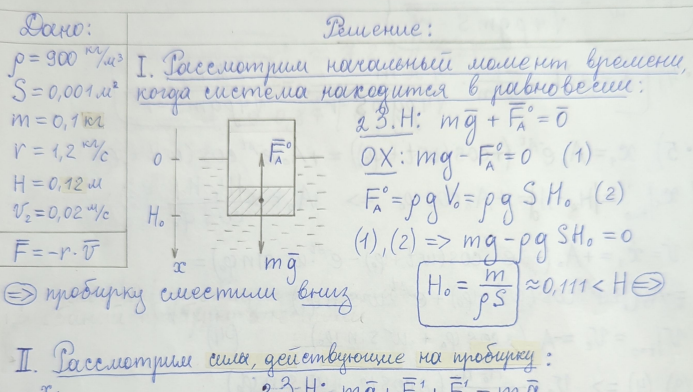 Дано:
ρ = 900 кг/м³
S = 0,001 м²
m = 0,1 кг
r = 1,2 кг/с
H = 0,12 м
V₂ = 0,02 м/с
F̅ = -r · V̅
Решение:
I. Рассмотрим начальный момент времени,
когда система находится в равновесии:
0
H₀
x
F̅_A⁰
mg̅
2 З.Н: mg̅ + F̅_A⁰ = 0̅
OX: mg - F_A⁰ = 0 (1)
F_A⁰ = ρgV₀ = ρgSH₀ (2)
(1),(2) => mg - ρgSH₀ = 0
H₀ = m/ρS ≈ 0,111 < H =>
=> пробирку сместили вниз
II. Рассмотрим силы, действующие на пробирку: